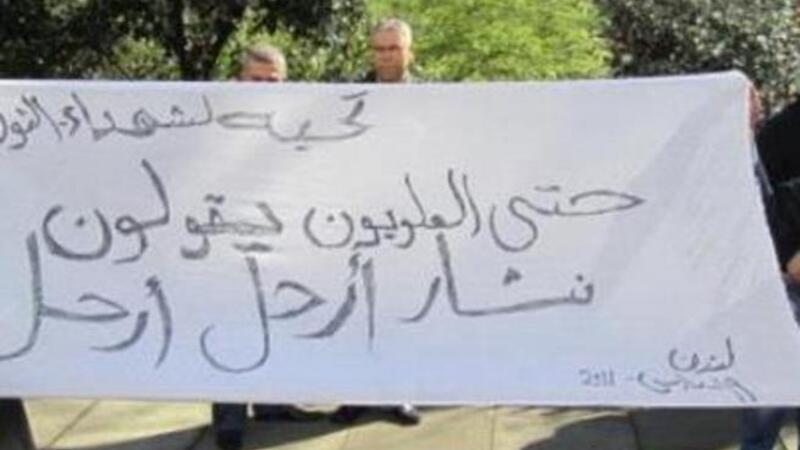 تحية لشهداء الثور
حتى العلويون يقولون
نشار أرحل أرحل
لندن
2011